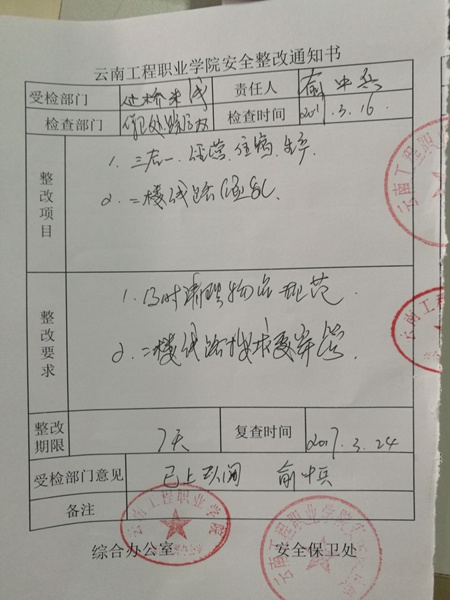 云南工程职业学院安全整改通知书
受检部门 过桥米线 责任人 俞中兵
检查部门 检查时间 3.16
整改项目
1.三合一、经营、住宿、生产.
2.二楼线路混乱
整改要求
1.及时清理物品规范
2.二楼线路按要求穿管
整改期限 7天 复查时间 2017.3.24
受检部门意见 俞中兵
备注
综合办公室 安全保卫处
云南工程职业学院
云南工程职业学院